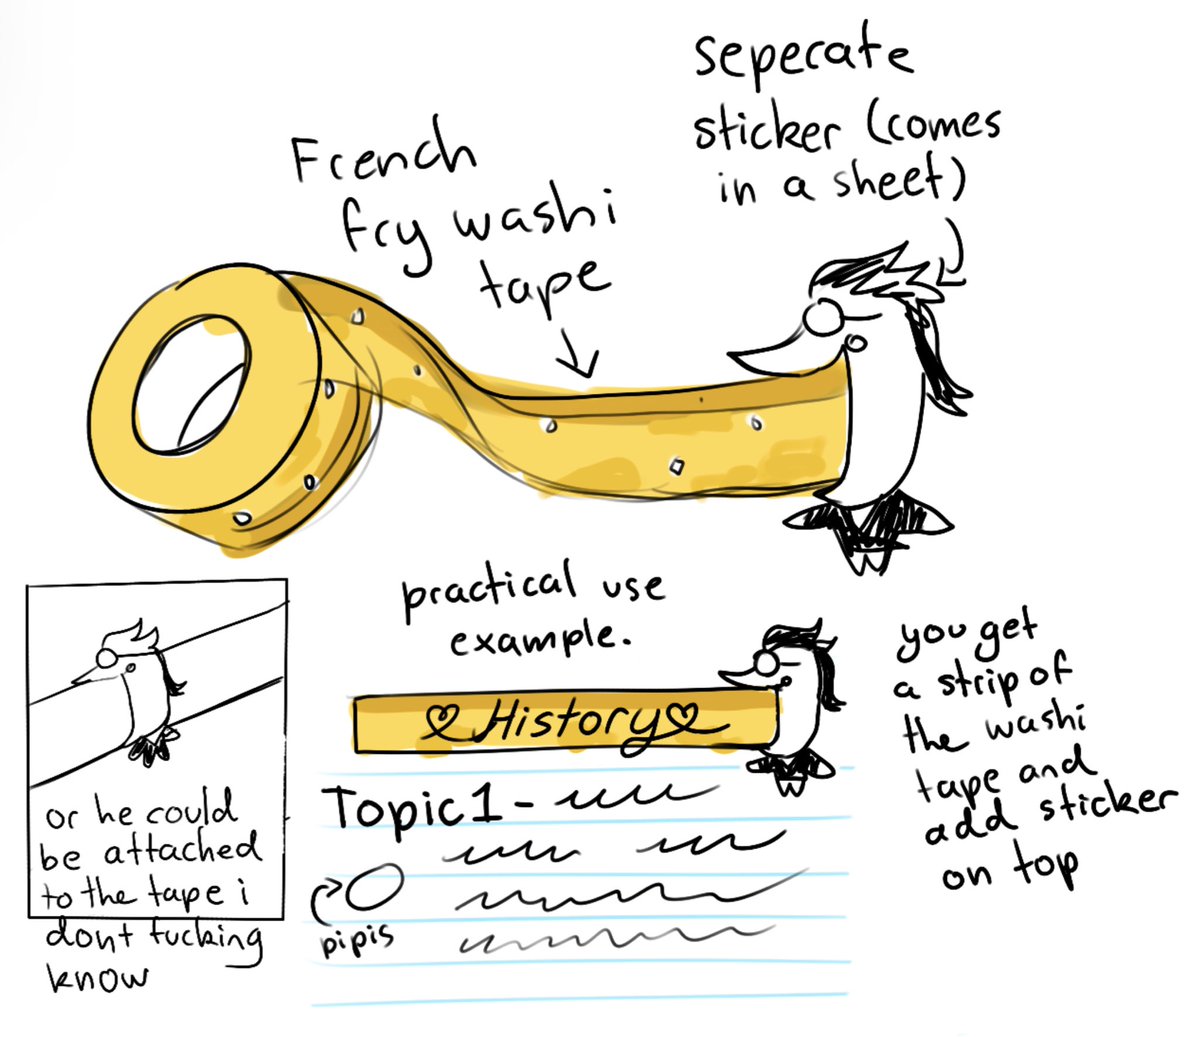 seperate
sticker (comes
in a sheet)
French
fry washi
tape
practical use
example.
History
Topic 1 -
pipis
you get
a strip of
the washi
tape and
add sticker
on top
or he could
be attached
to the tape i
dont fucking
know